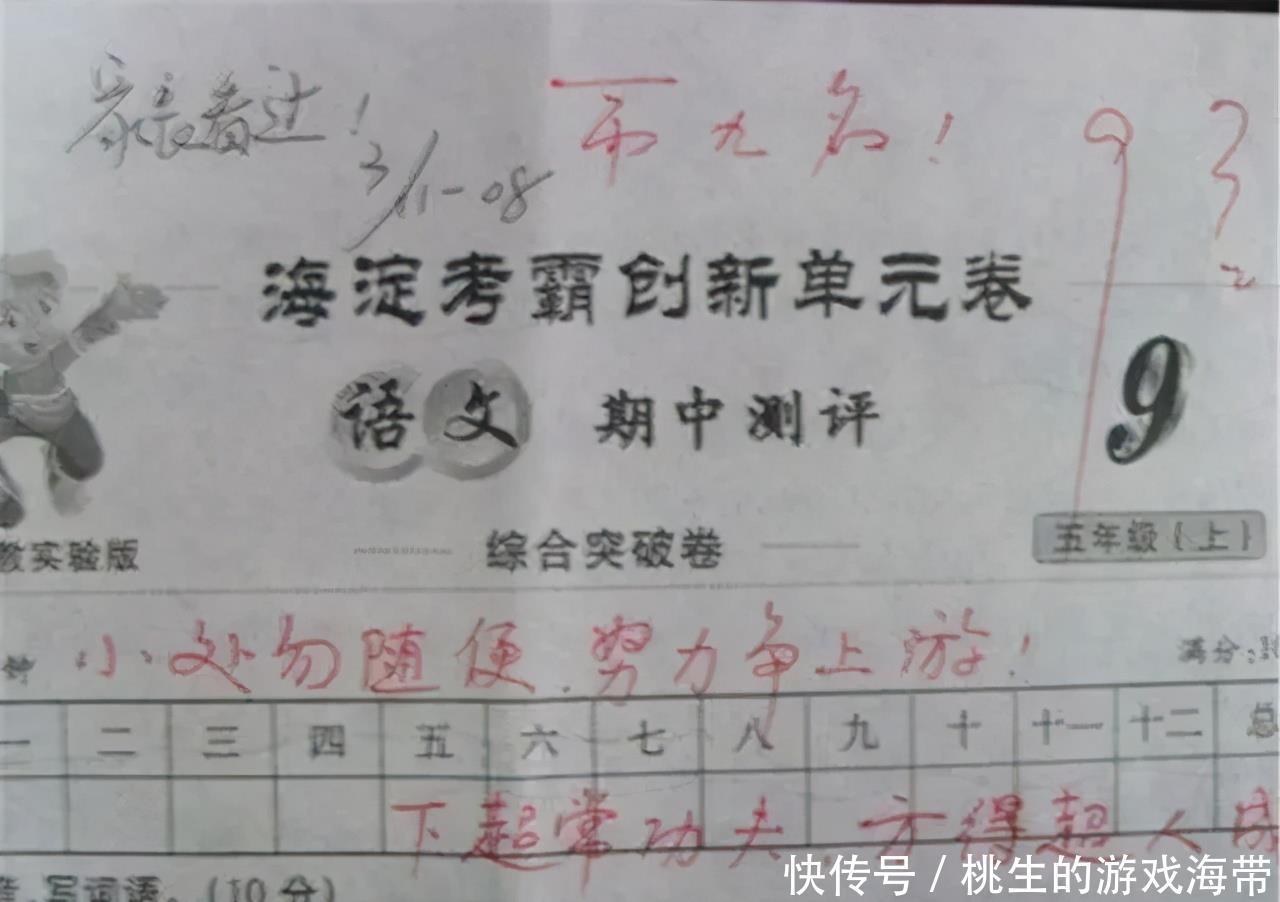 家长看过!
3/11-08
第九名!
93
海淀考霸创新单元卷
语文 期中测评
9
教实验版
综合突破卷
五年级(上)
小处勿随便.努力争上游!
满分:
一 二 三 四 五 六 七 八 九 十 十一 十二 总
下超常功夫,方得超人成
写词语。(10分)
快传号/桃生的游戏海带